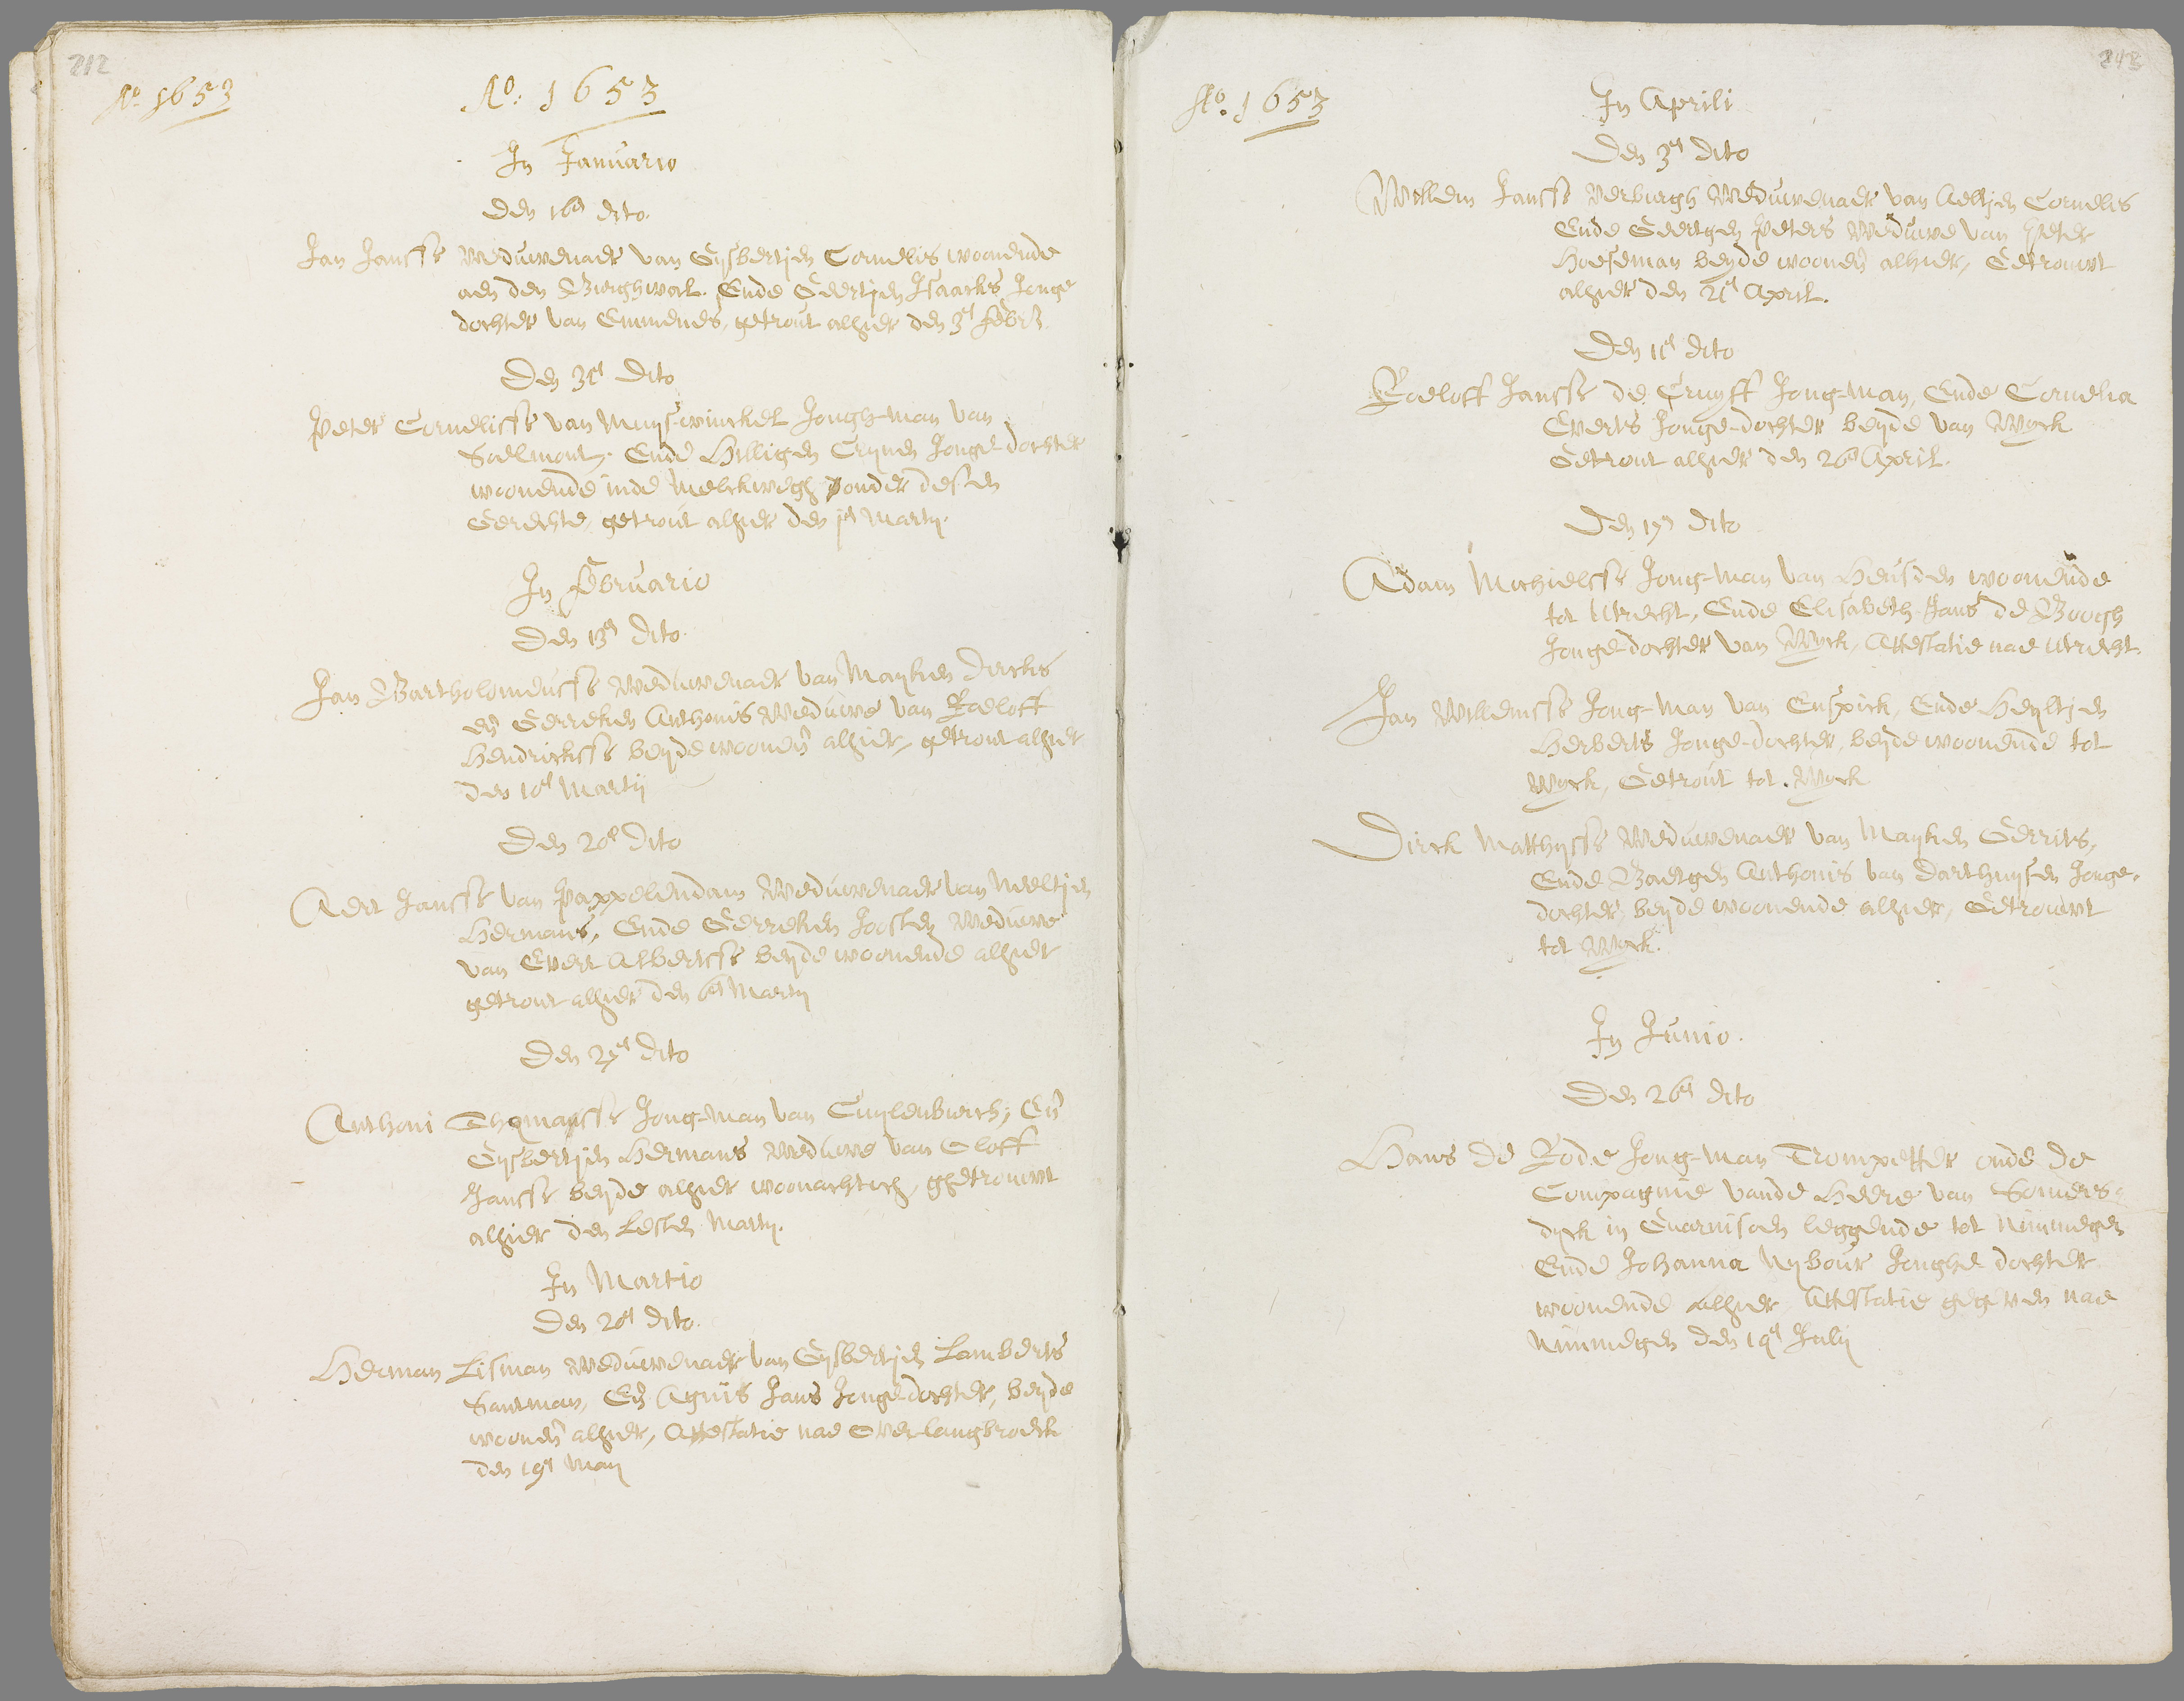 212
Aº 1653
Aº: 1653
In Januario
Den 16en dito.
Jan Janssz weduwenaer van Gijsbertjen Cornelis woonende
aen den Burghwal. Ende Geertjen Isaacks Jonge
dochter van Emmenes, getrout alhier den 3en febr.
Den 31en Dito
Peter Cornelissz van Muijswinckel Jongh-man van
Soelmont. Ende Hilligen Crijnen Jonge dochter
woonende inde Melckwegh onder desen
Gerechte, getrout alhier den 1en Martij.
In februario
Den 13en Dito.
Jan Bartholomeussz Weduwenaer van Maijken Dircks
en Gerreken Anthonis Weduwe van Roeloff
Hendrickssz beijde woonen alhier, getrout alhier
den 10en Martij
Den 20en Dito
Aert Janssz van Pappelendam Weduwenaer van Neeltjen
Hermans, Ende Gerreken Joosten Weduwe
van Evert Albertssz beijde woonende alhier
getrout alhier den 6en Martij
Den 27en Dito
Anthoni Thomassz Jong-man van Cuijlenburch; En
Gijsbertjen Hermans Weduwe van Oloff
Janssz beijde alhier woonachtich, ghetrouwt
alhier den Lesten Martij.
In Martio
Den 20en dito.
Herman Lisman Weduwenaer van Gijsbertjen Lamberts
Santman, En Agnis Jans Jonge dochter, beijde
woonen alhier, Attestatie nae Over-langbroeck
den 19en Maij
243
Aº. 1653
In Aprili
Den 3en dito
Willem Janssz Verburgh Weduwenaer van Aeltjen Cornelis
Ende Geertgen Peters Weduwe van Peter
Hoeseman beijde woonen alhier, Getrouwt
alhier den 21en April.
Den 11en dito
Roeloff Janssz de Cruijff Jong-man, Ende Cornelia
Everts Jonge-dochter beijde van Wyck
Getrout alhier den 26en April.
Den 17en dito
Adam Michielssz Jong-man van Heusden woonende
tot Utrecht, Ende Elisabeth Jans de Boogh
Jonge-dochter van Wyck, Attestatie nae Utrecht.
Jan Willemssz Jong-man van Enspick, Ende Heijltjen
Herberts Jonge-dochter, beijde woonende tot
Wyck, Getrout tot Wyck
Dirck Matthijssz Weduwenaer van Maijken Gerrits,
Ende Baetgen Anthonis van Darthuijsen Jonge-
dochter, beijde woonende alhier, Getrouwt
tot Wyck.
In Junio.
Den 26en dito
Hans de Rode Jong-man Trompetter onde de
Compagnie vande Heere van Somers-
dyck in Guarnisoen leggende tot Nimmegen
Ende Johanna Nijbour Jonghe dochter
woonende alhier Attestatie gegeven nae
Nimmegen den 19en Julij